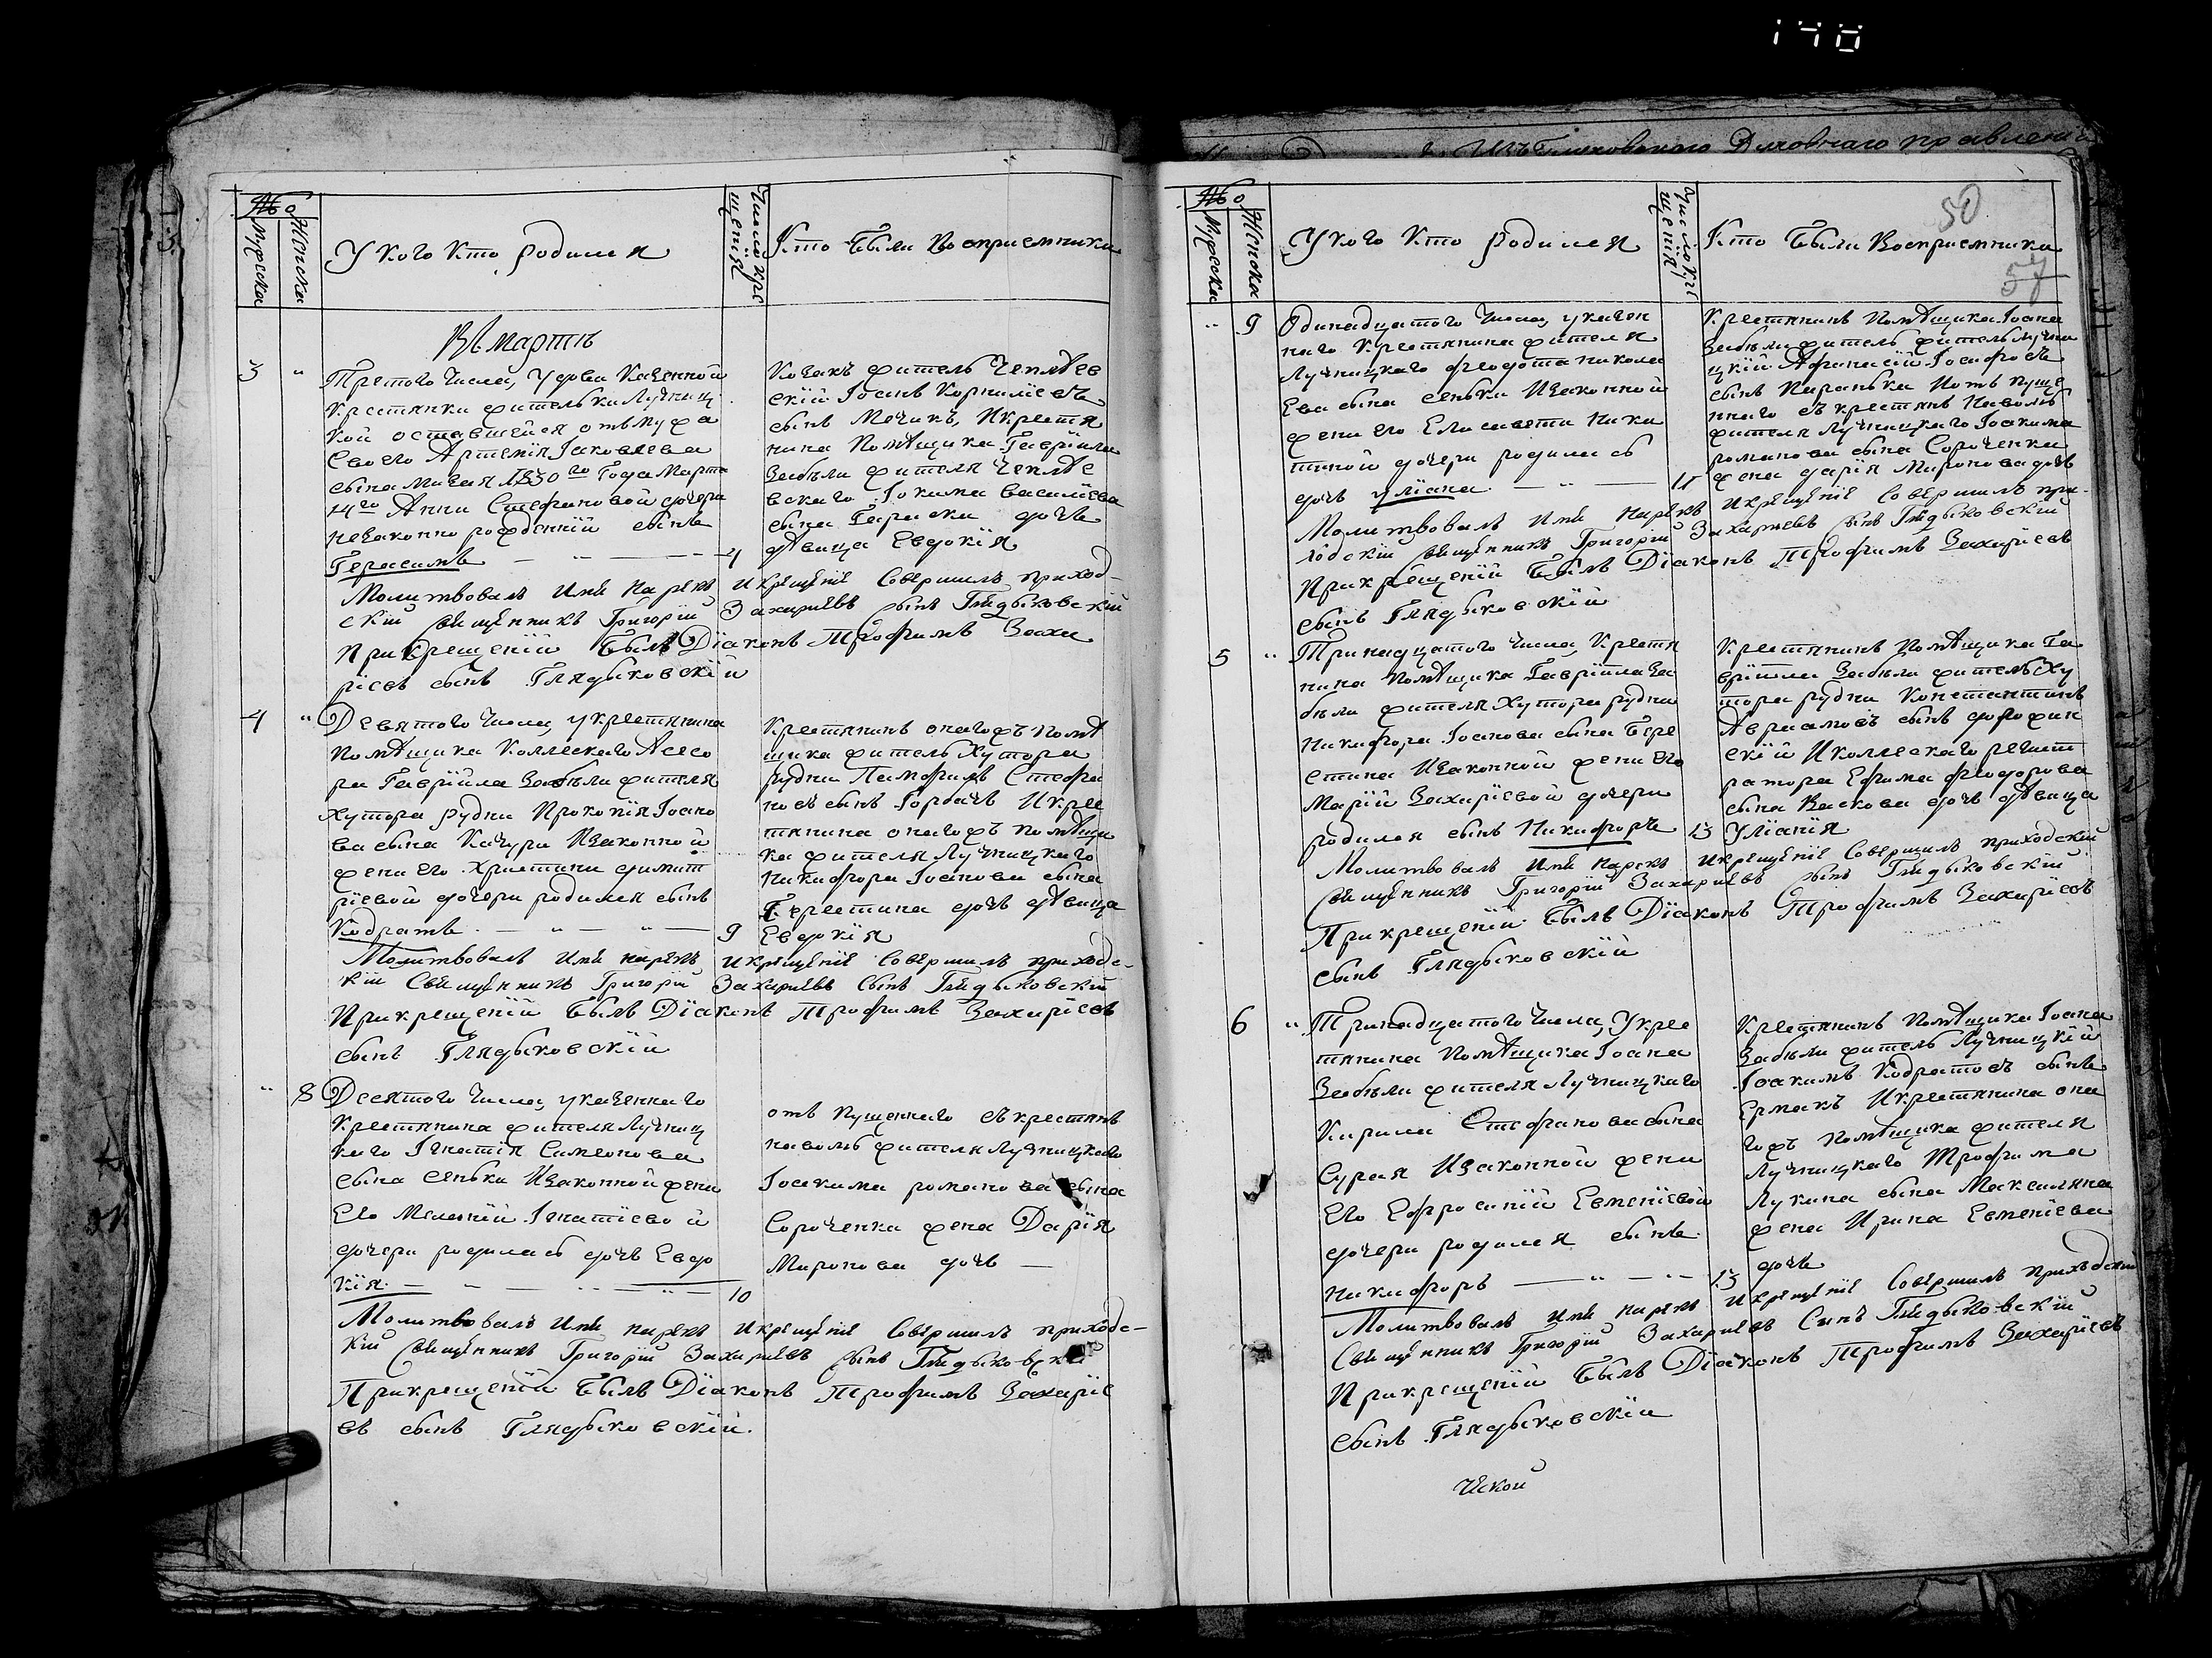 140
№ о
Мужеска
Женска
У кого кто родился
Число кре
щенія
Кто были восприемники
В Мартѣ
3 "
Третого числа, у вдови казенной
крестянки жителки Лучниц
кой оставшейся отъ мужа
своего Артемія Іаковлева
сына 1830го года Марта
14го Анни Стефановой дочери
незаконно рожденній сынъ
Герасимъ — " — — 4
Козакъ житель Чеплѣев
скій Іоанъ Корниліевъ
сынъ Мочикъ, и крестя
нина помѣщика Гавріила
Забѣли жителя Чеплѣе
вскаго Іокима Василіева
сына Гараски дочь
дѣвица Евдокія
Молитвовалъ имя нарекъ и крещеніе совершилъ приход-
скій священникъ Григорій Захаріевъ сынъ Глядыковскій
При крещеніи былъ Діаконъ Трофимъ Заха
ріевъ сынъ Глядыковскій
4 "
Девятого числа, у крестянина
помѣщика коллескаго асесо
ра Гавріила Забѣли жителя
хутора рудни Прокопія Іоано
ва сына Качури и законной
жени его Христини Димит
ріевой дочери родился сынъ
Кодратъ. — " — " — 9
Крестянинъ оногожъ помѣ
щика житель хутора
рудни Памфилъ Стефа
новъ сынъ Горбачъ и крес
тянина оногожъ помѣщи
ка жителя Лучницкаго
Никифора Іоанова сына
Берестина дочь дѣвица
Евдокія
Молитвовалъ имя нарекъ и крещеніе совершилъ приходс-
кій Священникъ Григорій Захаріевъ сынъ Глядыковскій
При крещеніи былъ Діаконъ Трофимъ Захаріевъ
сынъ Глядыковскій
" 8
Десятого числа, у казеннаго
крестянина жителя Лучниц
кого Ігнатія Симеонова
сына Сенька и законной жени
его Меланіи Ігнатіевой
дочери родилась дочь Евдо
кія. — " — " — " — 10
отъ пущеннаго съ крестянъ
наволъ жителя Лучницкаго
Іоакима Романова сына
Сороченка жена Дарія
Миронова дочь —
Молитвовалъ имя нарекъ и крещеніе совершилъ приходс-
кій священникъ Григорій Захаріевъ сынъ Глядыковскій
При крещеніи былъ Діаконъ Трофимъ Захаріе
въ сынъ Глядыковскій.
Духовнаго правленія
50
57
№ о
Мужеска
Женска
У кого кто родился
Число кре
щенія
Кто были восприемники
" 9
Одинадцатого числа, у казен
наго крестянина жителя
Лучницкаго Феодота Никола
ева сына Сенька и законной
жени его Елисавети Ники
тиной дочери родилась
дочь Уліана. — " — 11
Крестянинъ помѣщика Іоана
Забѣли житель Лучни
цкій Афанасій Іосифовъ
сынъ и отъ пуще
ннаго съ крестянъ наволъ
жителя Лучницкаго Іоакима
Романова сына Сороченка
жена Дарія Миронова дочь
Молитвовалъ имя нарекъ и крещеніе совершилъ при-
ходскій священникъ Григорій Захаріевъ сынъ Глядыковскій
При крещеніи былъ Діаконъ Трофимъ Захаріевъ
сынъ Глядыковскій
5 "
Тринадцатого числа, крестя
нина помѣщика Гавріила За
бѣли жителя хутора рудни
Никифора Іоанова сына Бере
стина и законной жени его
Маріи Захаріевой дочери
родился сынъ Никифоръ 13
Крестянинъ помѣщика Га
вріила Забѣли житель ху
тора рудни Константинъ
Авраамовъ сынъ
скій и коллескаго регист
ратора Ефима Феодорова
сына Васкова дочь дѣвица
Уліанія
Молитвовалъ имя нарекъ и крещеніе совершилъ приходскій
Священникъ Григорій Захаріевъ сынъ Глядыковскій
При крещеніи былъ Діаконъ Трофимъ Захаріевъ
сынъ Глядыковскій
6 "
Тринадцатого числа, у крес
тянина помѣщика Іоана
Забѣли жителя Лучницкаго
Кирила Стефанова сына
Сурая и законной жени
его Ефросиніи Евменіевой
дочери родился сынъ
Никифоръ — " — " — 13
Крестянинъ помѣщика Іоана
Забѣли житель Лучницкій
Іоакимъ Кодратовъ сынъ
Ермакъ и крестянина оно
гожъ помѣщика жителя
Лучницкаго Трофима
Лукина сына Максияна
жена Ирина Евменіева
дочь
Молитвовалъ имя нарекъ и крещеніе совершилъ приходскій
Священникъ Григорій Захаріевъ сынъ Глядыковскій
При крещеніи былъ Діаконъ Трофимъ Захаріевъ
сынъ Глядыковскій